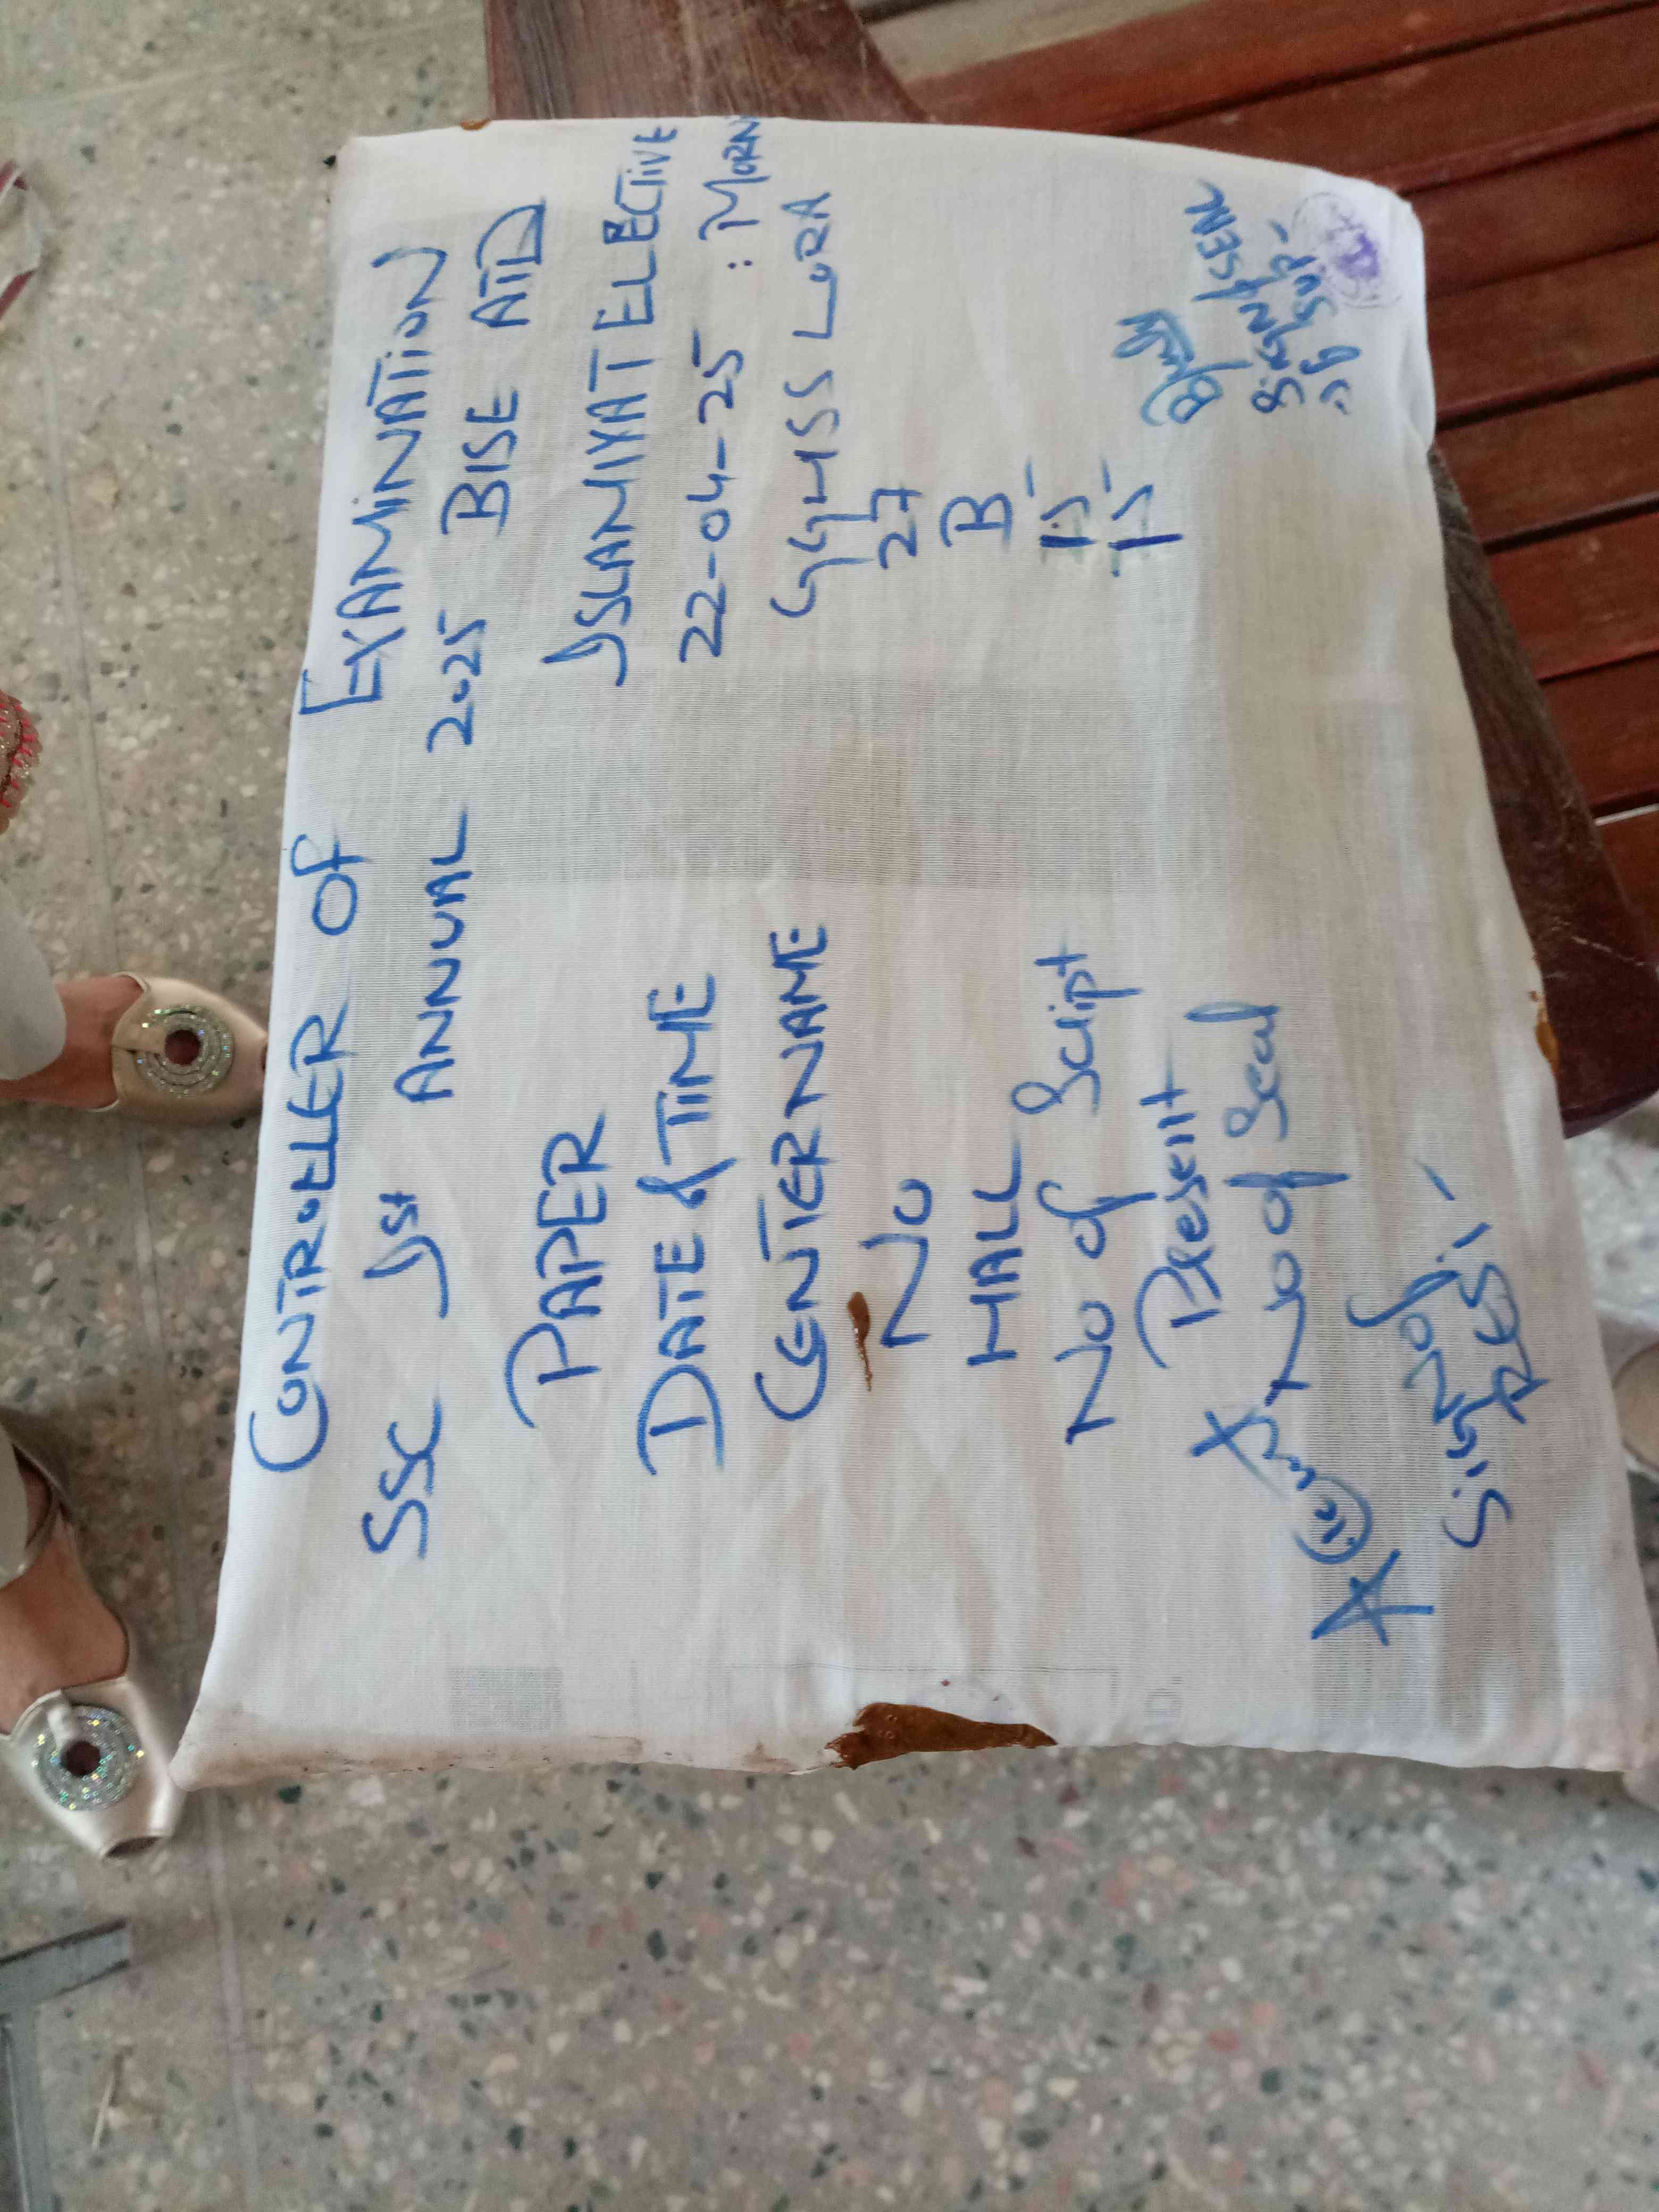 CONTROLLER OF EXAMINATION
SSC Ist ANNUAL 2025 BISE ATD
PAPER ISLAMIYAT ELECTIVE
DATE & TIME 22-04-25 : MORN
CENTER NAME: GGHSS LORA
NO 27
HALL B
No of Script 15
Present 15
No of Seal
SIGN & SEAL
of SUP-
Sign of